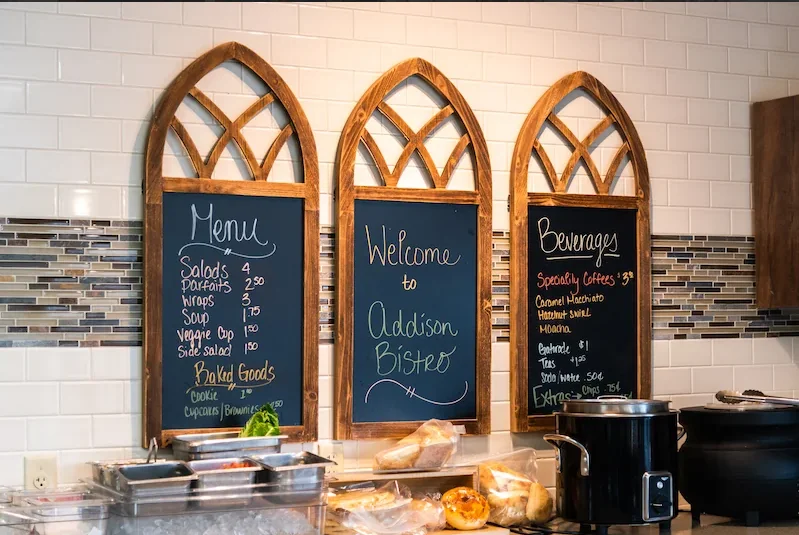 Menu
Salads 4
Parfaits 2.50
Wraps 3
Soup 1.75
Veggie Cup 1.50
Side salad 1.50
Baked Goods
Cookie
Cupcakes/Brownies
Welcome
to
Addison
Bistro
Beverages
Speciality Coffees
Caramel Macchiato
Hazelnut Swirl
Moacha
Gatorade $1
Teas $1.25
Soda/water .50¢
Extras: Chips .75¢